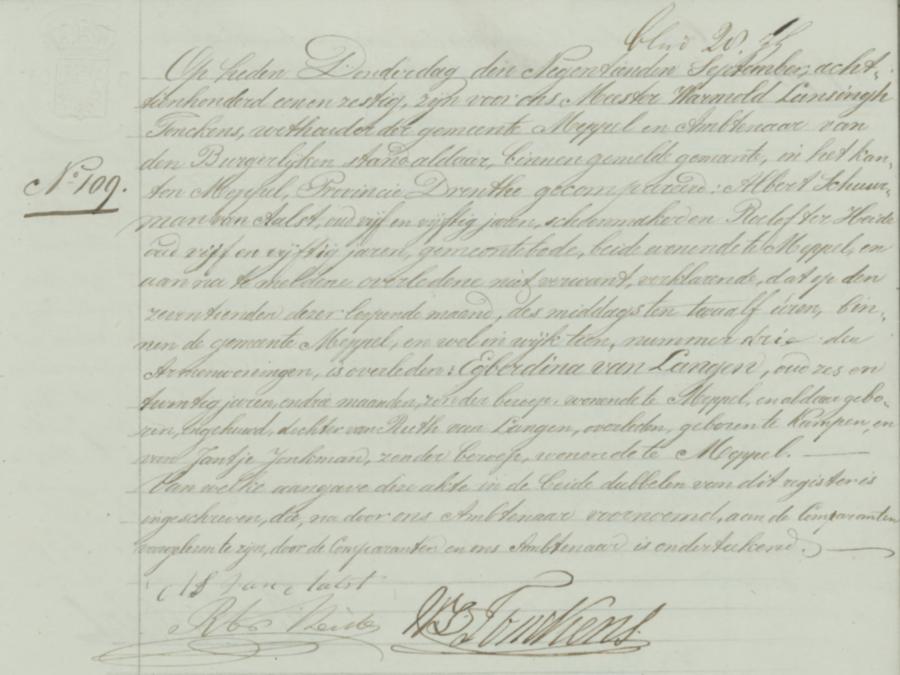 blad 28
Op heden Donderdag den Negentienden September, acht-
tienhonderd een en zestig, zijn voor ons Meester Warmold Lunsingh
Tonckens, wethouder der gemeente Meppel en Ambtenaar van
den Burgerlijken stand aldaar, binnen gemelde gemeente, in het kan-
No. 109.
ton Meppel, Provincie Drenthe gecompareerd: Albert Schuur-
man van Aalst, oud vijf en vijftig jaren, schoenmaker en Roelof ter Heide
oud vijf en vijftig jaren, gemeentebode, beide wonende te Meppel, en
aan na te meldene overledene niet verwant, verklarende, dat op den
zeventienden dezer loopende maand, des middags ten twaalf uren, bin-
nen de gemeente Meppel, en wel in wijk tien, nummer drie der
Armenwoningen, is overleden: Egberdina van Langen, oud zes en
twintig jaren, en drie maanden, zonder beroep, wonende te Meppel, en aldaar gebo-
ren, ongehuwd, dochter van Ruth van Langen, overleden, geboren te Kampen, en
van Jantje Jonkman, zonder beroep, wonende te Meppel.
Van welke aangave deze akte in de beide dubbelen van dit register is
ingeschreven, die, na door ons Ambtenaar voornoemd, aan de Comparanten
voorgelezen te zijn, door de Comparanten en ons Ambtenaar is onderteekend.
A S van Aalst
R ter Heide
W L Tonckens